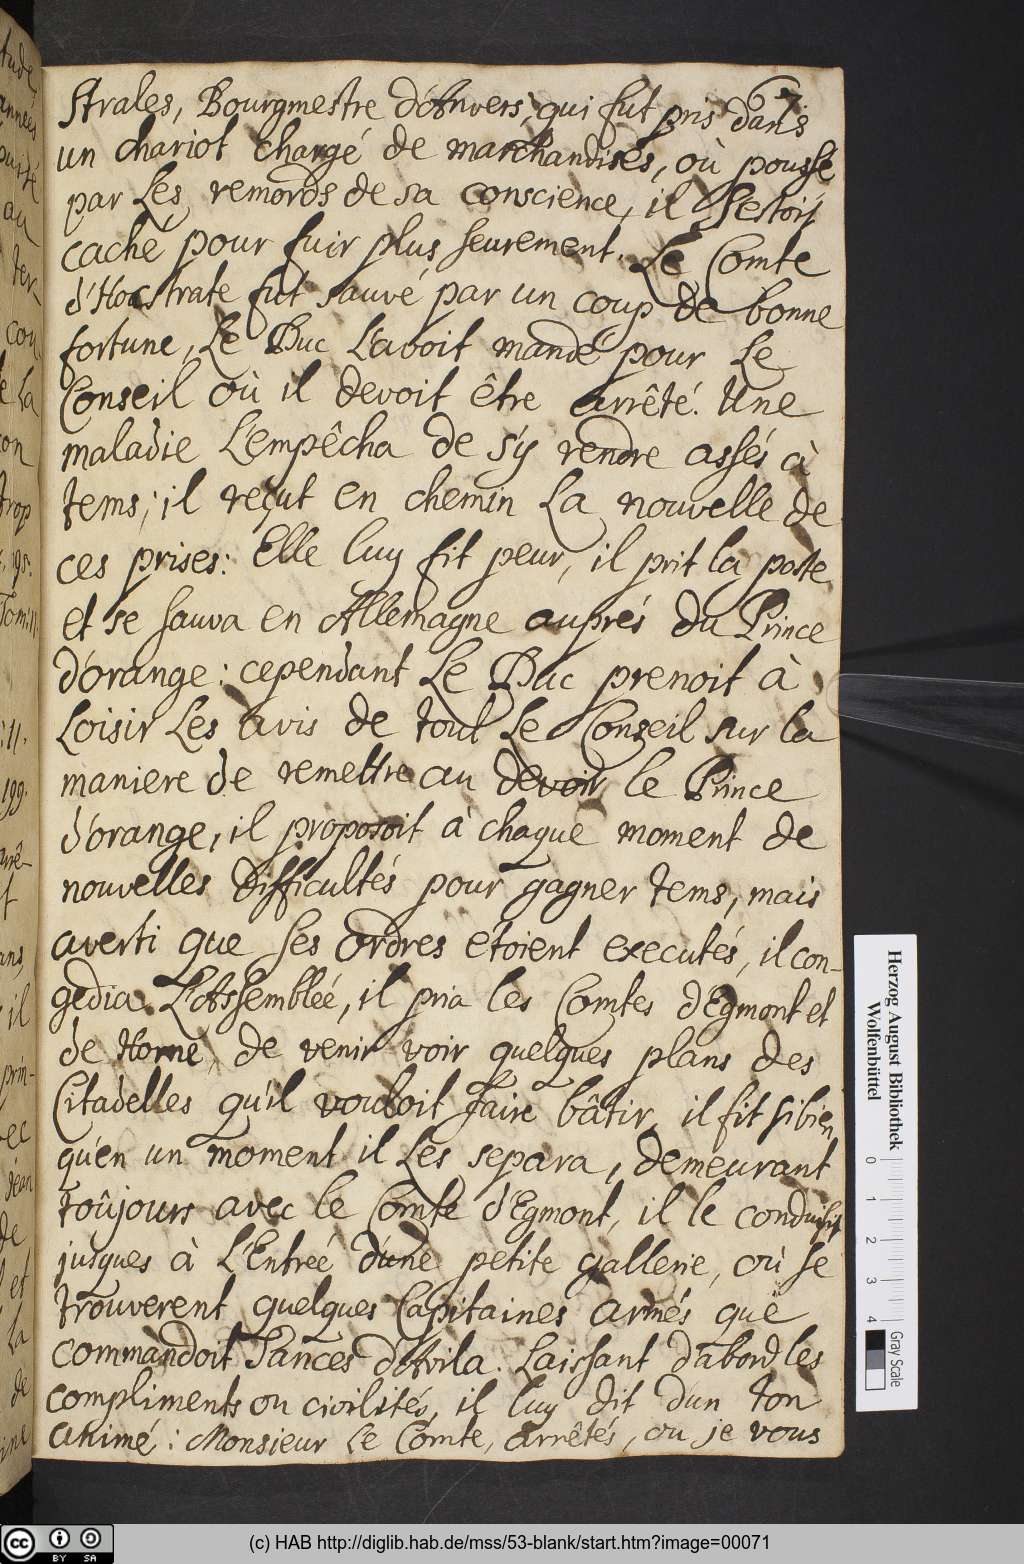 67
Strales, Bourgmestre d'Anvers, qui fut pris dans
un chariot chargé de marchandises, où poussé
par Les remords de sa conscience, il s'estoit
caché pour fuir plus seurement. Le Comte
d'Hocstrate fut sauvé par un coup de bonne
fortune, Le Duc L'avoit mandé pour Le
Conseil où il devoit être arrêté. Une
maladie L'empêcha de s'y rendre assés à
tems; il reçut en chemin La nouvelle de
ces prises: Elle luy fit peur, il prit la poste
et se sauva en Allemagne auprés du Prince
d'orange: cependant Le Duc prenoit à
Loisir Les avis de tout Le Conseil sur la
maniere de remettre au devoir le Prince
d'orange, il proposoit à chaque moment de
nouvelles difficultés pour gagner tems, mais
averti que ses ordres étoient executés, il con-
gedia L'Assembleé, il pria les Comtes d'Egmont et
de Horne, de venir voir quelques plans des
Citadelles qu'il vouloit faire bâtir, il fit si bien
qu'en un moment il Les separa, demeurant
toûjours avec le Comte d'Egmont, il le conduisit
jusques à L'Entreé d'une petite gallerie, où se
trouverent quelques Capitaines armés que
commandoit Sances d'Avila. Laissant d'abord les
compliments ou civilités, il luy dit d'un ton
animé: Monsieur Le Comte, arrêtés, ou je vous
Herzog August Bibliothek
Wolfenbüttel
0 1 2 3 4
Gray Scale
(c) HAB http://diglib.hab.de/mss/53-blank/start.htm?image=00071
cc BY SA